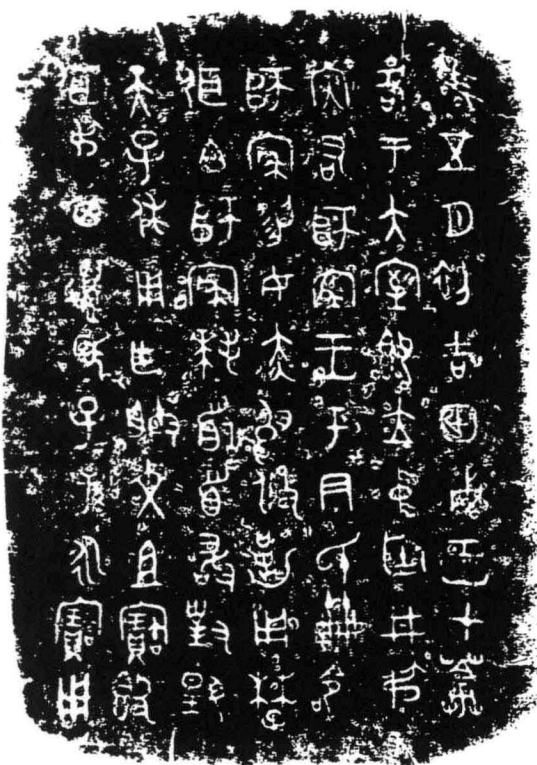 隹五月初吉甲戌王才𦯒
各于大室即立中廷井叔
內右師㝨王乎尹氏冊命
師㝨易女赤舄攸勒用楚
弭白師㝨拜稽首敢對揚
天子休用乍朕文且寶𣪘
弭叔其萬年子孫永寶用